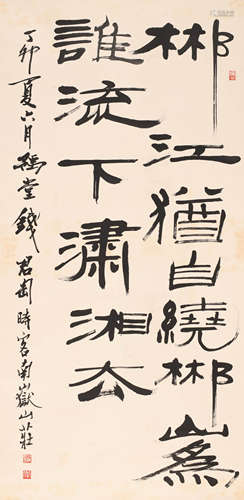 郴江猶自繞郴山為
誰流下瀟湘去
丁卯夏六月豫堂錢君匋時客南嶽山莊